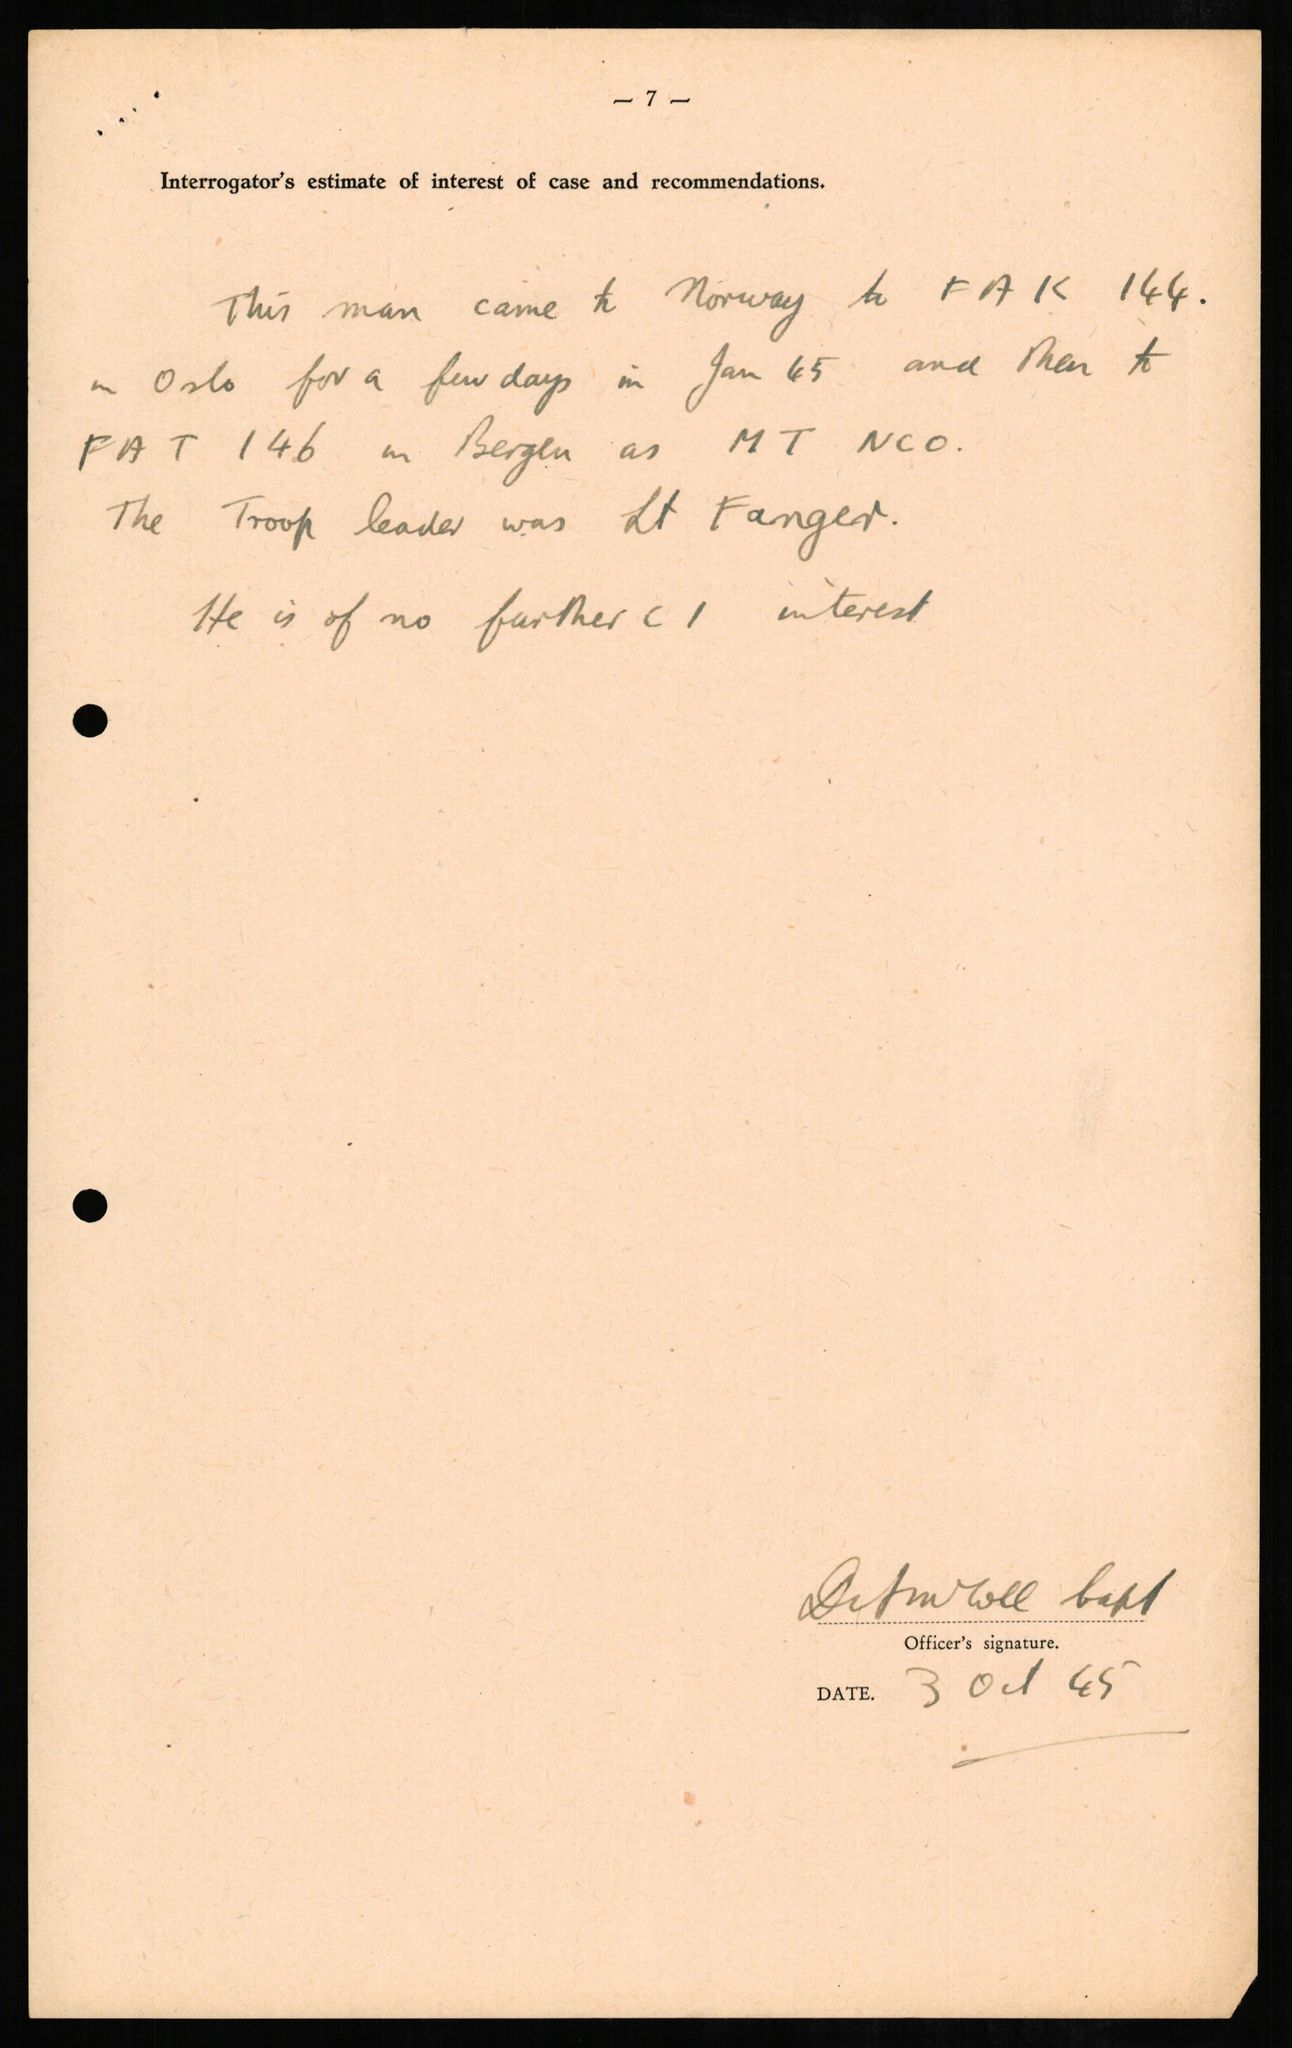 — 7 —
Interrogator's estimate of interest of case and recommendations.
This man came to Norway to FAK 144.
in Oslo for a few days in Jan 45 and then to
FAT 146 in Bergen as MT NCO.
The Troop leader was Lt Fanger.
He is of no further C I interest
Capt
Officer's signature.
DATE. 3 Oct 45